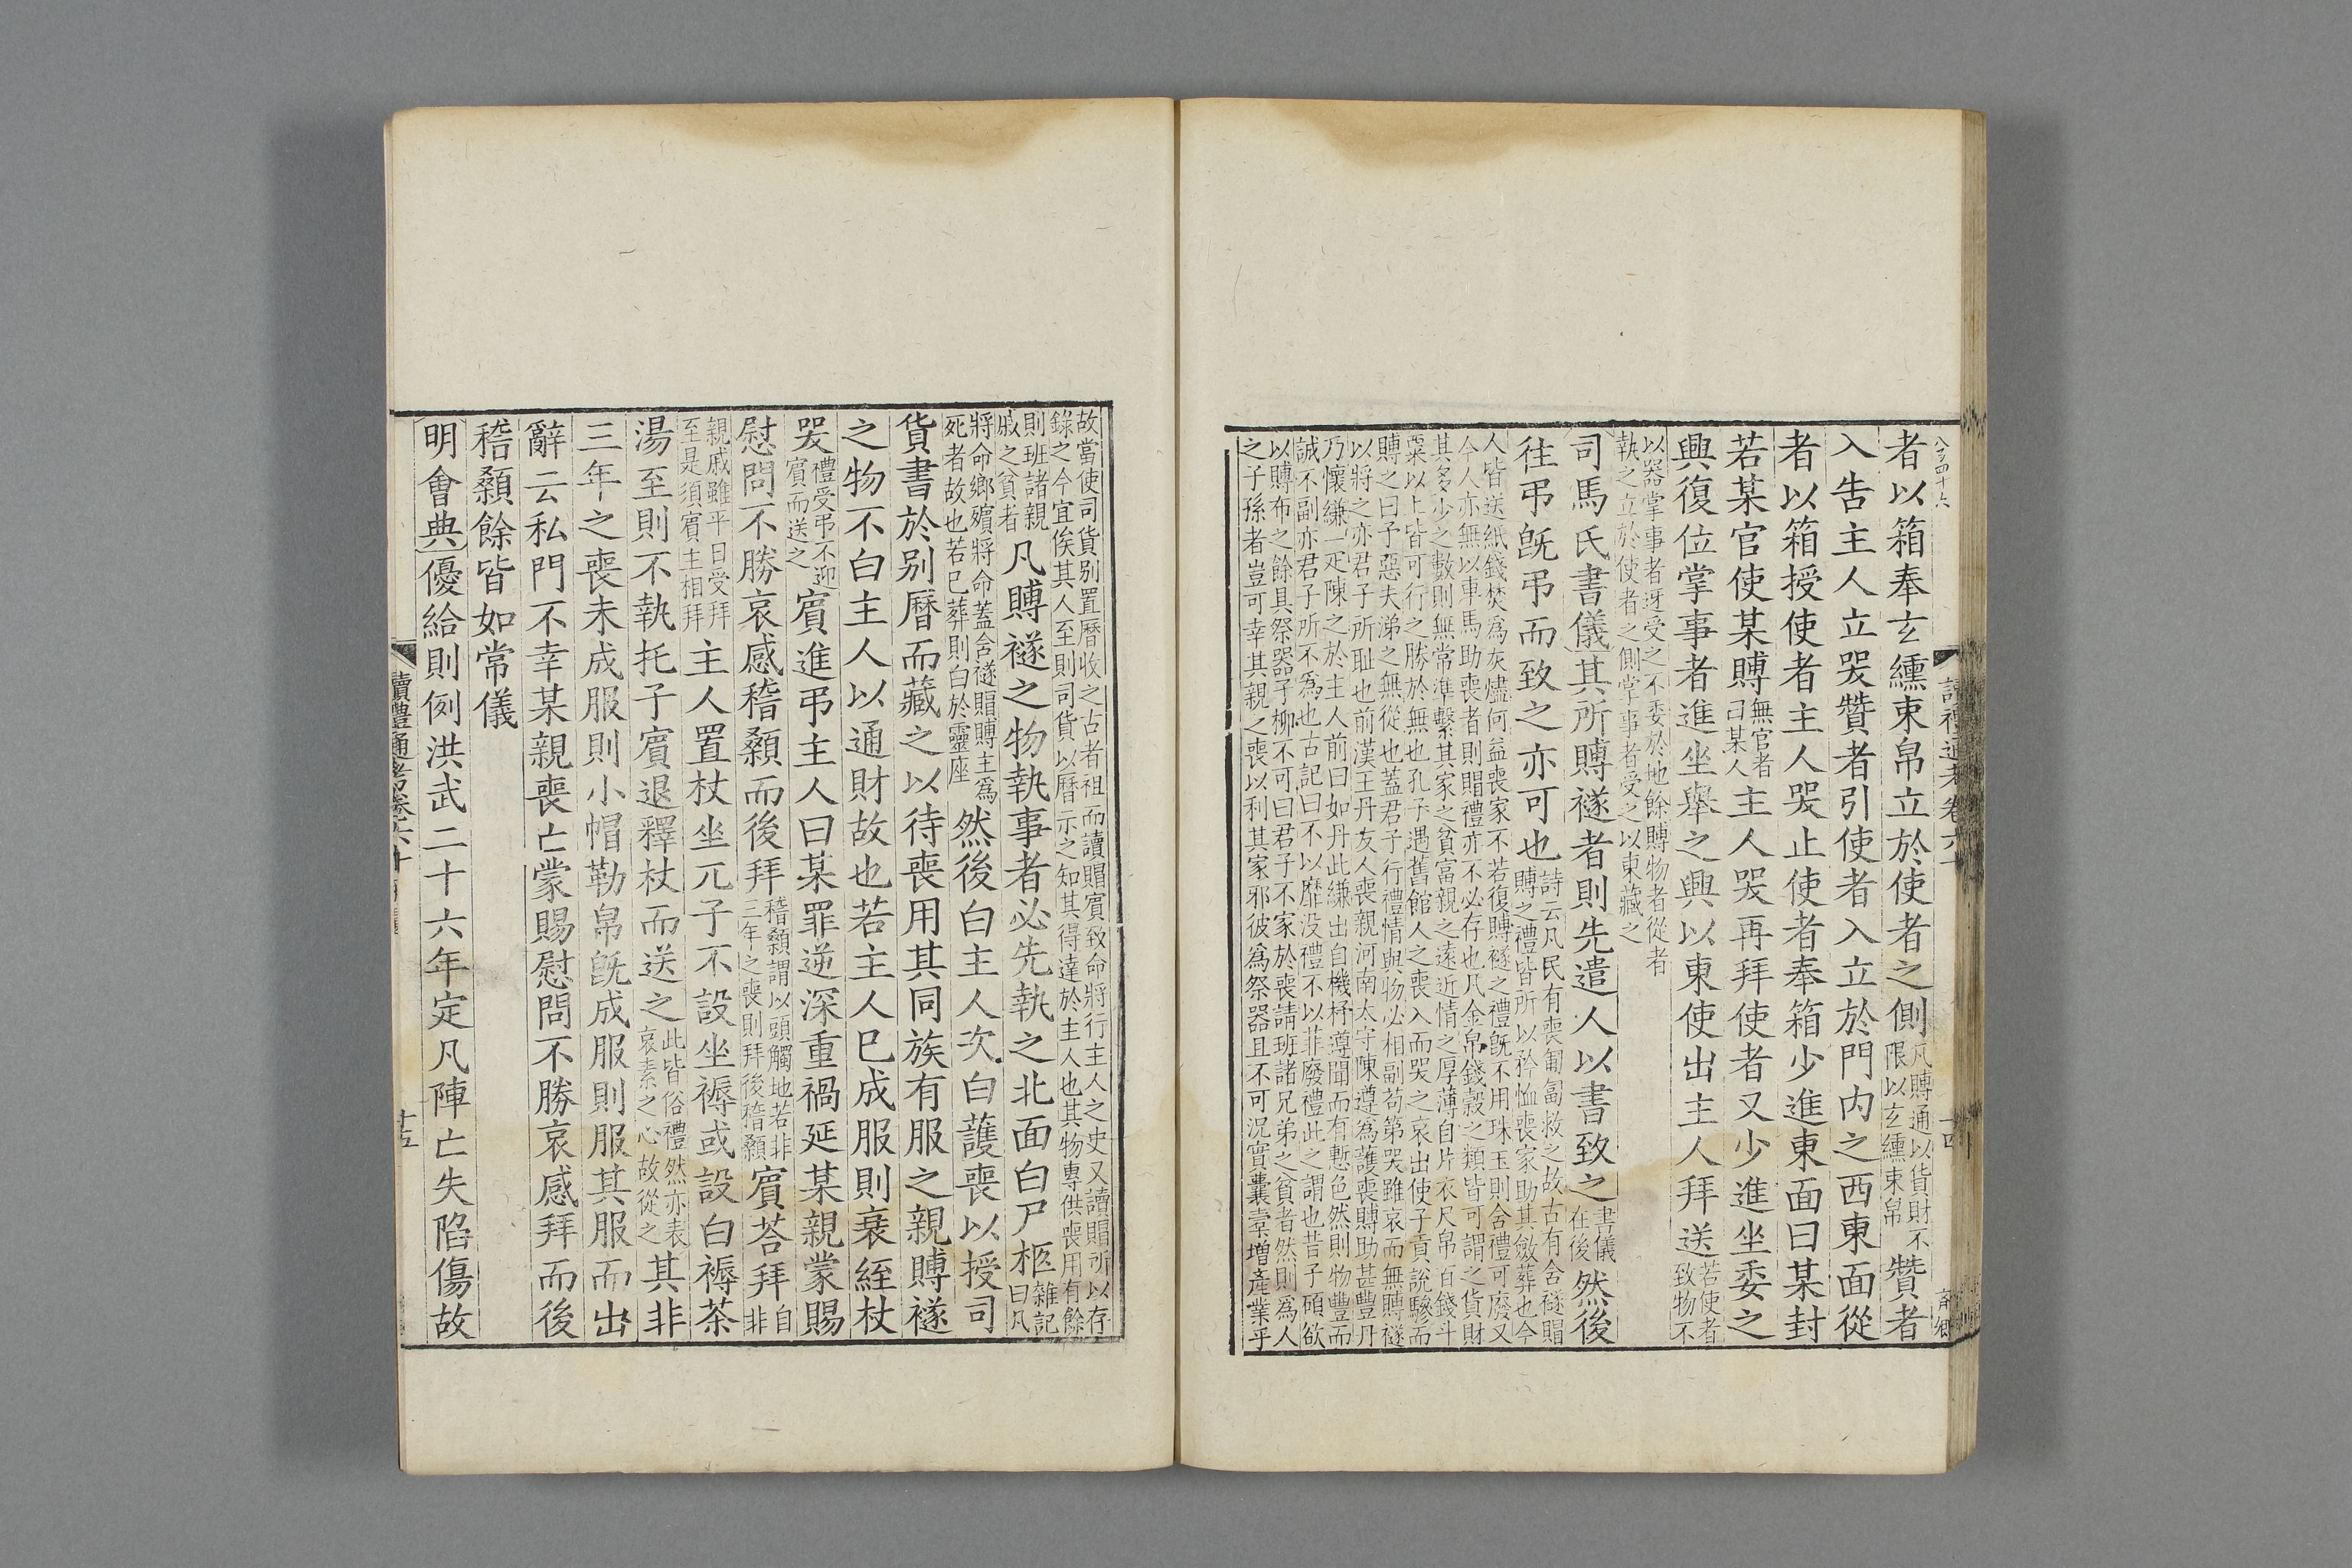 者以箱奉玄纁束帛立於使者之側凡賻通以貨財不限以玄纁束帛贊者
入告主人立哭贊者引使者入立於門內之西東面從
者以箱授使者主人哭止使者奉箱少進東面曰某封
若某官使某賻無官者曰某人主人哭再拜使者又少進坐委之
興復位掌事者進坐舉之興以東使出主人拜送若使者致物不
以器掌事者迓受之不委於地餘賻物者從者
執之立於使者之側掌事者受之以東藏之
司馬氏書儀其所賻襚者則先遣人以書致之書儀在後然後
往弔旣弔而致之亦可也詩云凡民有喪匍匐救之故古有含襚賵
賻之禮皆所以矜恤喪家助其斂葬也今
人皆送紙錢焚爲灰燼何益喪家不若復賻襚之禮旣不用珠玉則含禮可廢又
今人亦無以車馬助喪者則賵禮亦不必存也凡金帛錢穀之類皆可謂之貨財
其多少之數則無常準繫其家之貧富親之遠近情之厚薄自片衣尺帛百錢斗
粟以上皆可行之勝於無也孔子遇舊館人之喪入而哭之哀出使子貢說驂而
賻之曰予惡夫涕之無從也蓋君子行禮情與物必相副苟第哭雖哀而無賻襚
以將之亦君子所耻也前漢王丹友人喪親河南太守陳遵爲護喪賻助甚豐丹
乃懷縑一疋陳之於主人前曰如丹此縑出自機杼遵聞而有慙色然則物豐而
誠不副亦君子所不爲也古記曰不以靡没禮不以菲廢禮此之謂也昔子碩欲
以賻布之餘具祭器子柳不可曰君子不家於喪請班諸兄弟之貧者然則爲人
之子孫者豈可幸其親之喪以利其家邪彼爲祭器且不可況實囊橐增產業乎
讀禮通考卷六十
故當使司貨别置曆收之古者祖而讀賵賓致命將行主人之史又讀賵所以存
錄之今宜俟其人至則司貨以曆示之知其得達於主人也其物專供喪用有餘
則班諸親戚之貧者凡賻襚之物執事者必先執之北面白尸柩雜記曰凡
將命鄉殯將命蓋含襚賵賻主爲死者故也若已葬則白於靈座然後白主人次白護喪以授司
貨書於别曆而藏之以待喪用其同族有服之親賻襚
之物不白主人以通財故也若主人已成服則衰絰杖
哭禮受弔不迎賓而送之賓進弔主人曰某罪逆深重禍延某親蒙賜
慰問不勝哀感稽顙而後拜稽顙謂以頭觸地若非三年之喪則拜後稽顙賓荅拜自非
親戚雖平日受拜至是須賓主相拜主人置杖坐兀子不設坐褥或設白褥茶
湯至則不執托子賓退釋杖而送之此皆俗禮然亦表哀素之心故從之其非
三年之喪未成服則小帽勒帛旣成服則服其服而出
辭云私門不幸某親喪亡蒙賜慰問不勝哀感拜而後
稽顙餘皆如常儀
明會典優給則例洪武二十六年定凡陣亡失陷傷故
讀禮通考卷六十
十五